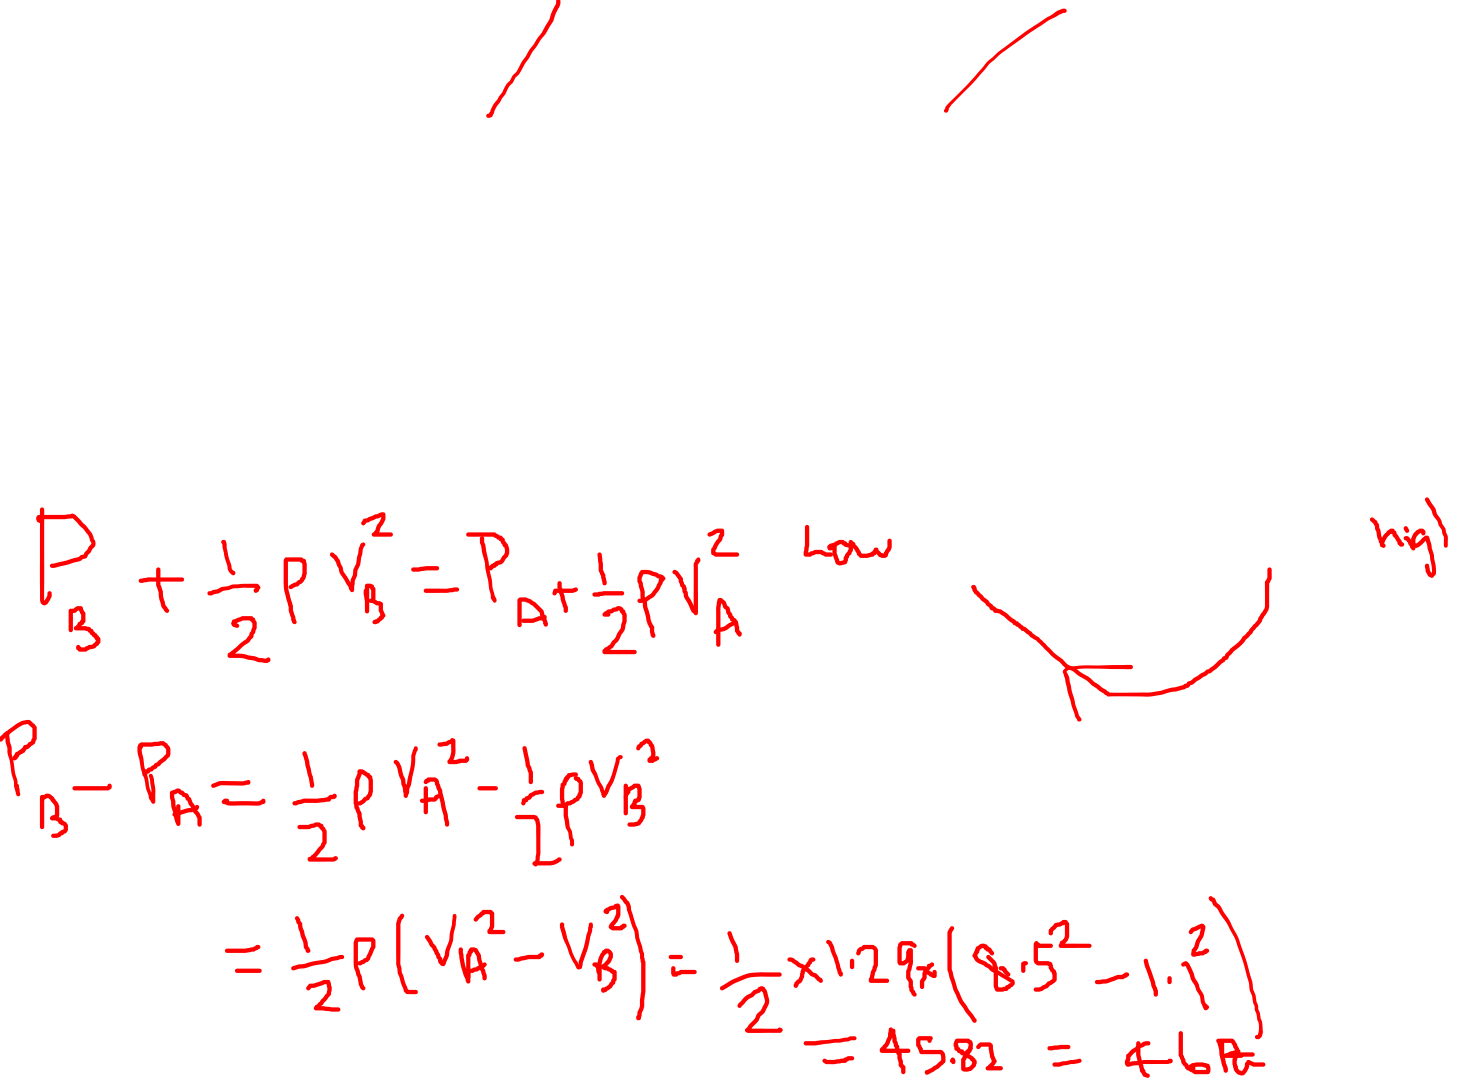 P_B + 1/2 ρ V_B^2 = P_A + 1/2 ρ V_A^2 Low hig
P_B - P_A = 1/2 ρ V_A^2 - 1/2 ρ V_B^2
= 1/2 ρ (V_A^2 - V_B^2) = 1/2 × 1.29 × (8.5^2 - 1.1^2)
= 45.82 = 46 Pa